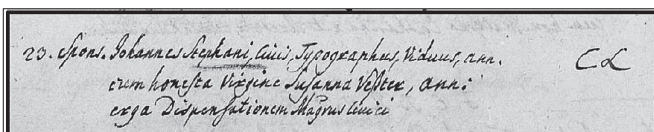 23. Spons. Johannes Stephani, Civis, Typographus, Viduus, ann. C L
cum honesta Virgine Susanna Vester, ann:
erga Dispensationem Magnif